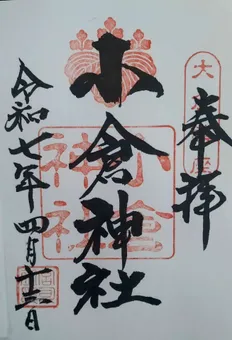 奉拝
小倉神社
令和七年四月十六日
小倉神社